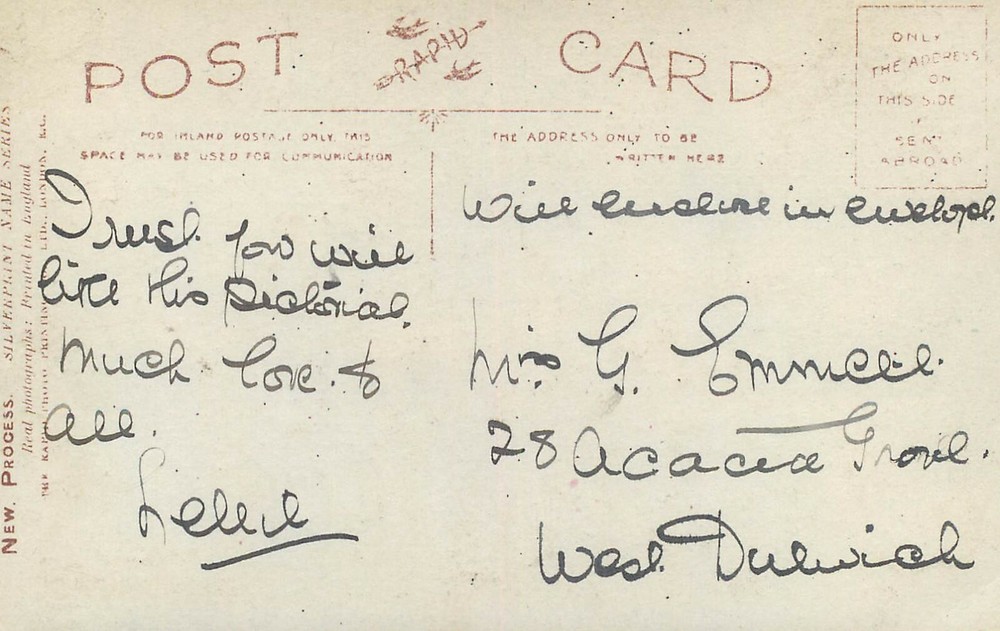 POST CARD
RAPID
ONLY
THE ADDRESS
ON
THIS SIDE
IF
SENT
ABROAD
FOR INLAND POSTAGE ONLY, THIS
SPACE MAY BE USED FOR COMMUNICATION
THE ADDRESS ONLY TO BE
WRITTEN HERE
Trust you will
like this pictorial.
Much love to
all.
Will enclose in envelope.
Mrs G. Emmett.
28 Acacia Grove.
West Dulwich
NEW. PROCESS. SILVERPRINT NAME SERIES
Real photographs: Printed in England
THE RAPID PHOTO PRINTING LTD., LONDON, E.C.